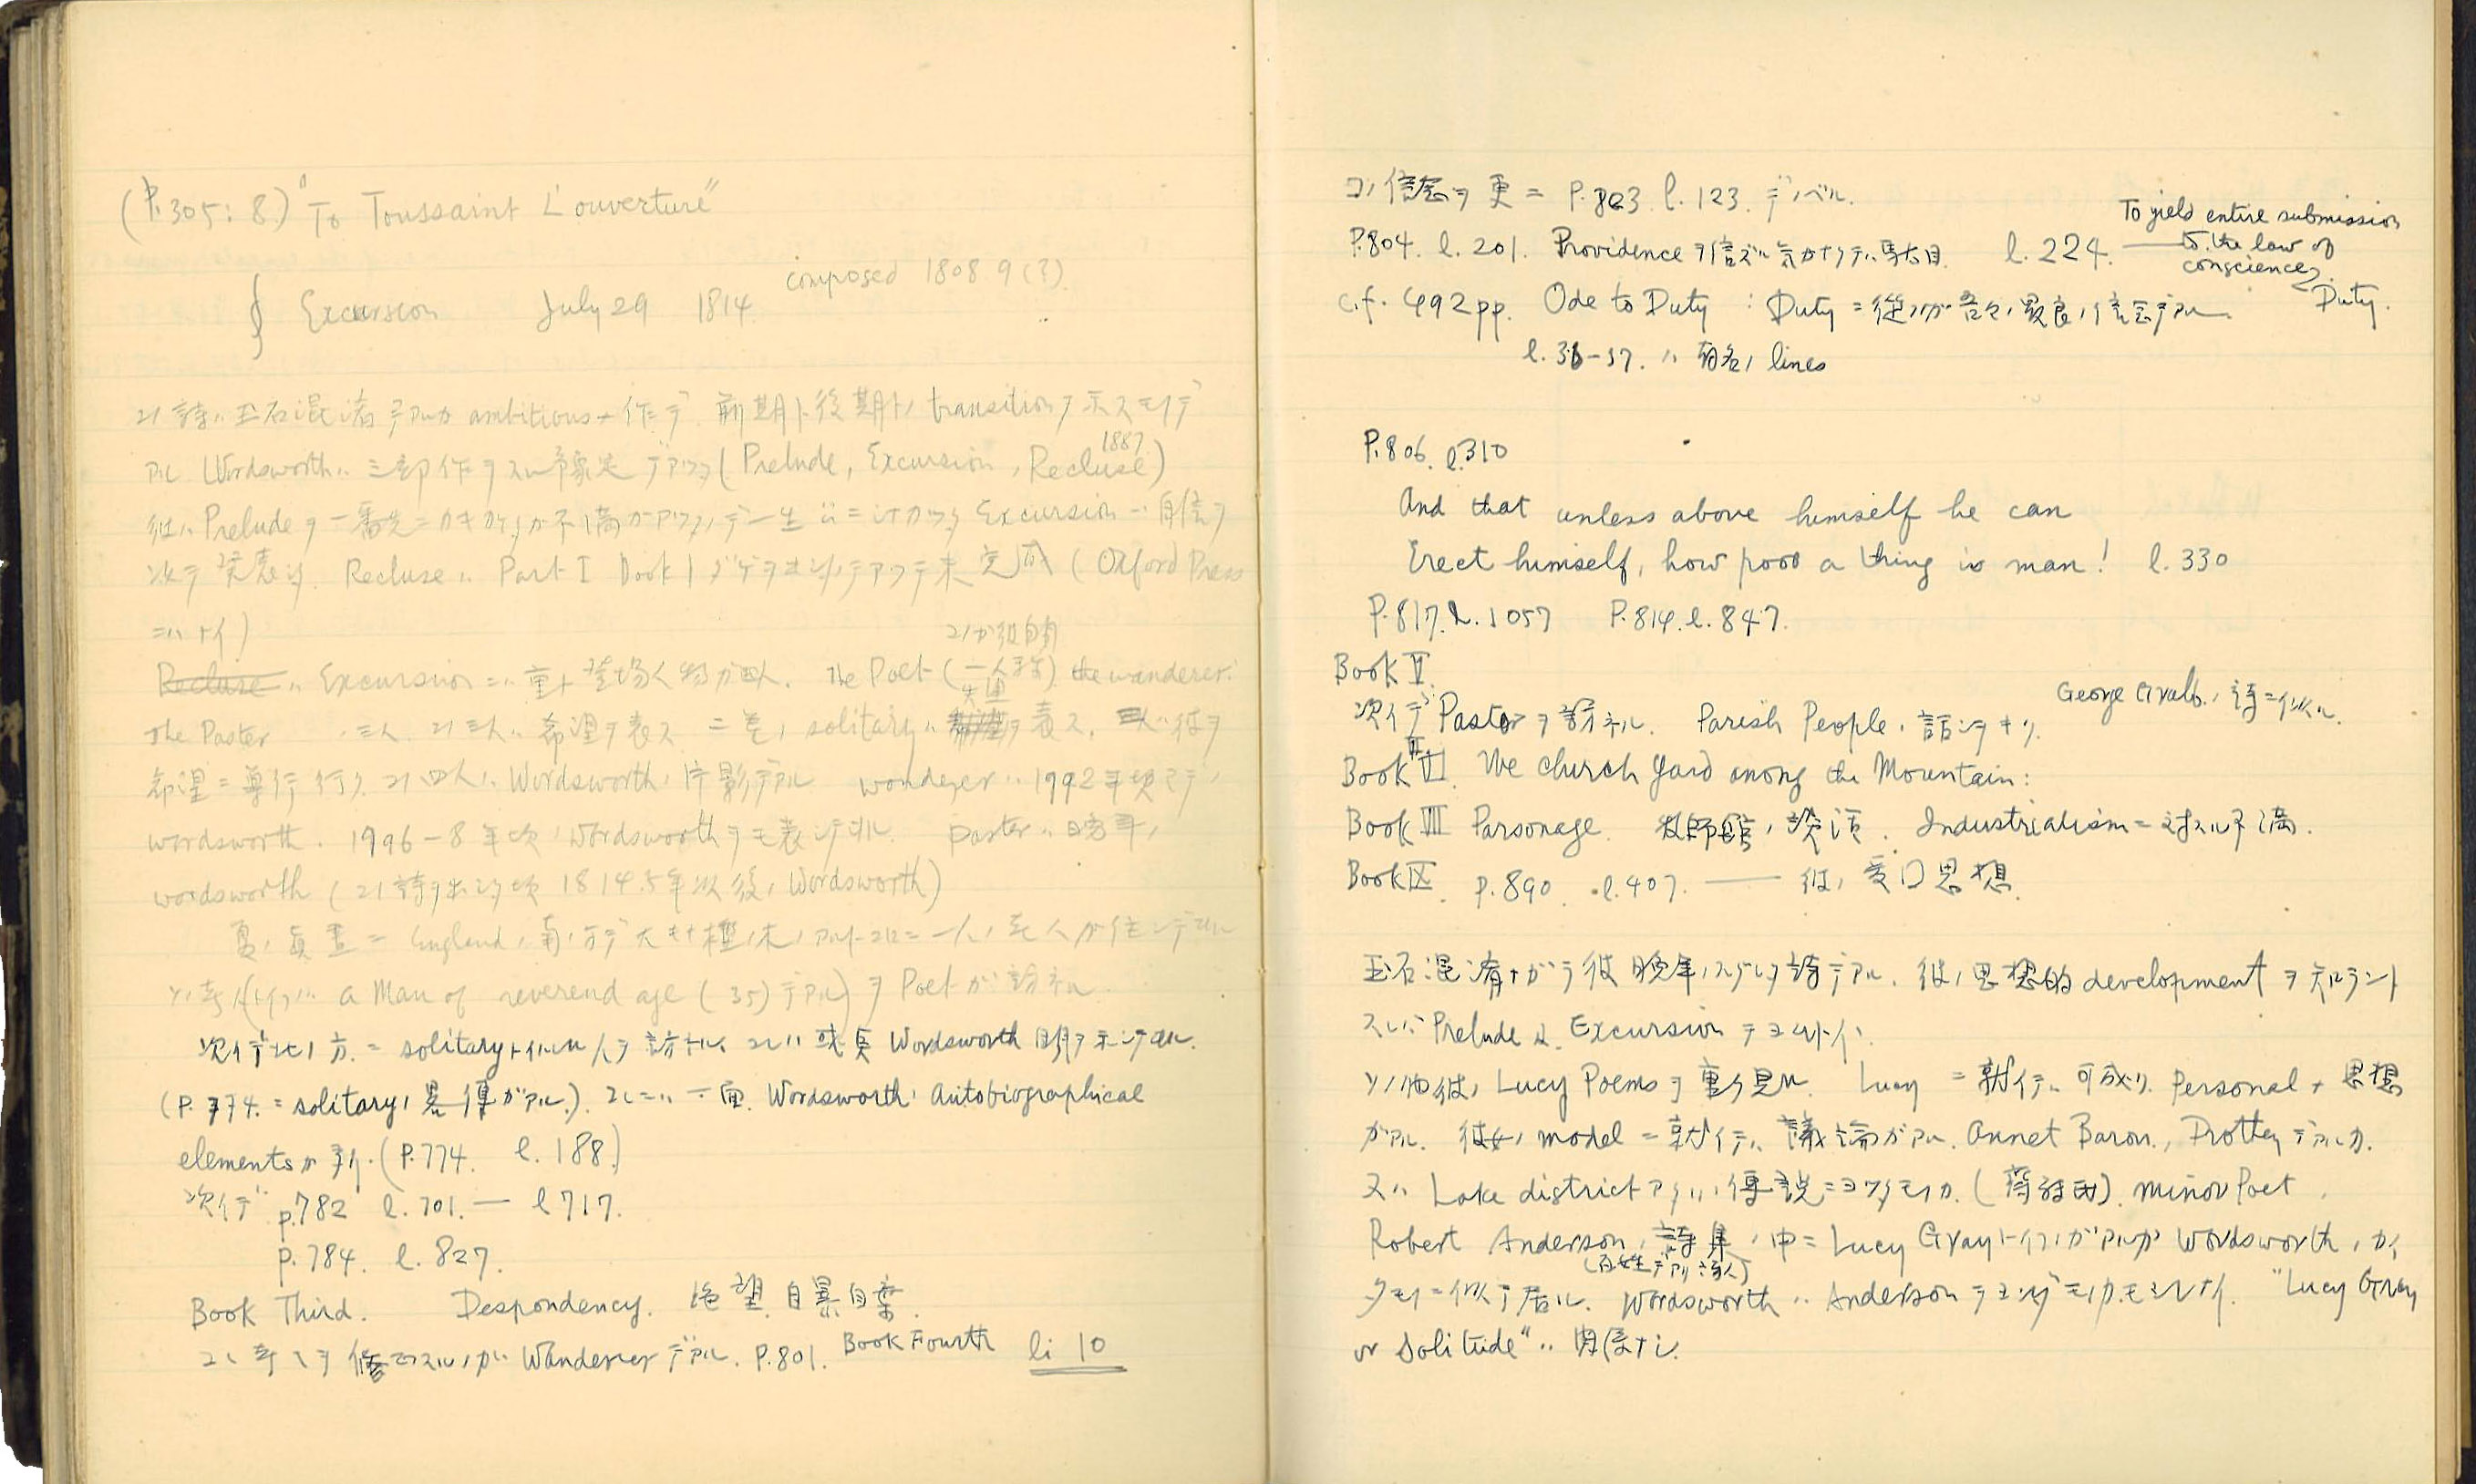 (P. 305: 8.) "To Toussaint L'ouverture"
composed 1808.9(?).
§ Excursion July 29 1814
コノ詩ハ玉石混淆デアルガ ambitious ナ作デ 前期ト後期トノ transition ヲ示スモノデ
アル Wordsworth ハ三部作ヲスル予定デアッタ (Prelude, Excursion, Recluse) 1887
彼ハ Prelude ヲ一番先ニカキ Excursion 自信ヲ
以テ発表シタ. Recluse ハ Part I Book I ダケ 未完成 (Oxford Press
ニハナイ)
コノガ彼自身
Recluse ハ Excursion ニハ重ナ登場人物ガ四人. The Poet (一人称) the wanderer.
The Paster 三人. コノ三人ハ希望ヲ表ス solitary ハ失望ヲ表ス. 三人ハ彼ヲ
希望ニ導イテ行ク. コノ四人ハ Wordsworth ノ片影デアル wonderer ハ 1992年頃マデノ
wordsworth. 1996-8年頃ノ Wordsworth ヲ代表シテヰル. paster ハ晩年ノ
wordsworth (コノ詩ヲ出シタ頃 1814.5年以後ノ Wordsworth)
夏ノ真昼ニ England ノ南ノ方デ大キナ 一人ノ老人ガ住ンデヰル
a Man of reverend age (35) デアル) ヲ Poet ガ訪ネル.
次イデ北ノ方ニ solitary ト云ル人ヲ訪ネル. コレハ或点 Wordsworth ヲ示シテヰル.
(P. 774. = solitary ノ略伝ガアル.). コレニハ一面 Wordsworth ノ Autobiographical
elements ガ多イ. (P. 774. l. 188.)
次イデ p. 782 l. 701. — l 717.
p. 784. l. 827.
Book Third. Despondency. 絶望 自暴自棄.
コレヲ Wanderer デアル. P. 801. Book Fourth li 10
コノ信念ヲ更ニ P. 803 l. 123. デノベル.
P. 804. l. 201. Providence ヲ信ズル気ガナクテハ駄目. l. 224. — To yield entire submission
to the law of
conscience,
Duty.
c.f. 492 pp. Ode to Duty : Duty ニ従フノガ吾々ノ最良ノ信念デアル.
l. 36-37. ハ有名ノ lines
P. 806. l. 310
And that unless above himself he can
Erect himself, how poor a thing is man! l. 330
P. 817. l. 1057 P. 814. l. 847.
Book V.
次イデ Pastor ヲ訪ネル. Parish People ノ話ヲキク. George Cralb ノ詩ニ似ル.
Book VI. VII The Church Yard among the Mountain:
Book VIII Parsonage. 牧師館ノ談話. Industrialism ニ対スル不満.
Book IX. p. 890. l. 407. — 彼ノ愛国思想.
玉石混淆ナガラ彼晩年ノスグレタ詩デアル. 彼ノ思想的 development ヲ知ラント
スレバ Prelude 及 Excursion ヲヨムトイイ.
ソノ他彼ノ Lucy Poems ヲ重ク見ル. Lucy ニ就イテハ可成リ Personal ナ思想
ガアル. 彼女ノ model ニ就イテハ議論ガアル. Annet Baron, Drothy デアルカ.
又ハ Lake district アタリノ伝説ニヨッタモノカ. minor Poet
Robert Anderson ノ詩集ノ中ニ Lucy Gray ト云フノガアルガ Wordsworth ノカイ
(百姓デアリ詩人)
タモノニ似テ居ル. Wordsworth ハ Anderson ヲヨンダモノカモシレナイ. "Lucy Gray
or Solitude" ハ関係ナシ.